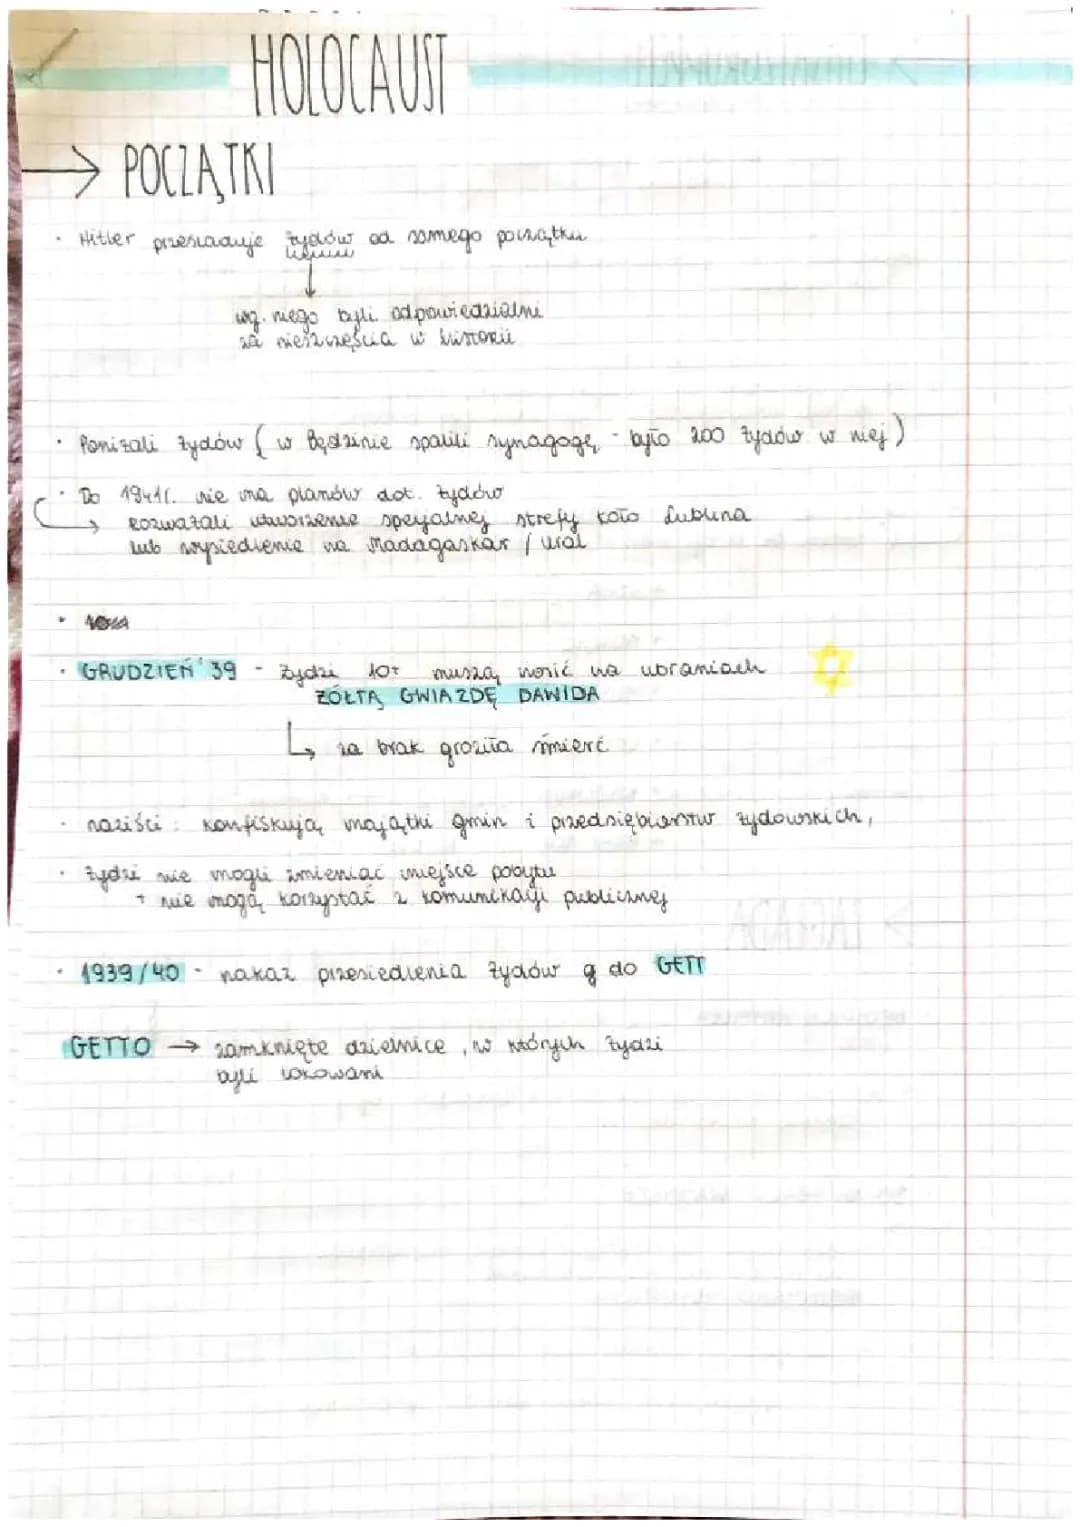 HOLOCAUST
→ POCZĄTKI
• Hitler prześladuje żydów od samego początku
↓
wg. niego byli odpowiedzialni
za nieszczęścia w historii
• Poniżali żydów ( w Będzinie spalili synagogę - było 200 żydów w niej )
• Do 1941r. nie ma planów dot. żydów
→ rozważali utworzenie specjalnej strefy koło Lublina
lub wysiedlenie na Madagaskar / Ural
• GRUDZIEŃ '39 - Żydzi 10+ muszą nosić na ubraniach
ŻÓŁTĄ GWIAZDĘ DAWIDA
↳ za brak groziła śmierć
• naziści : konfiskują majątki gmin i przedsiębiorstw żydowskich,
• Żydzi nie mogli zmieniać miejsce pobytu
+ nie mogą korzystać z komunikacji publicznej
• 1939/40 - nakaz przesiedlenia żydów g do GETT
GETTO → zamknięte dzielnice , w których żydzi
byli lokowani